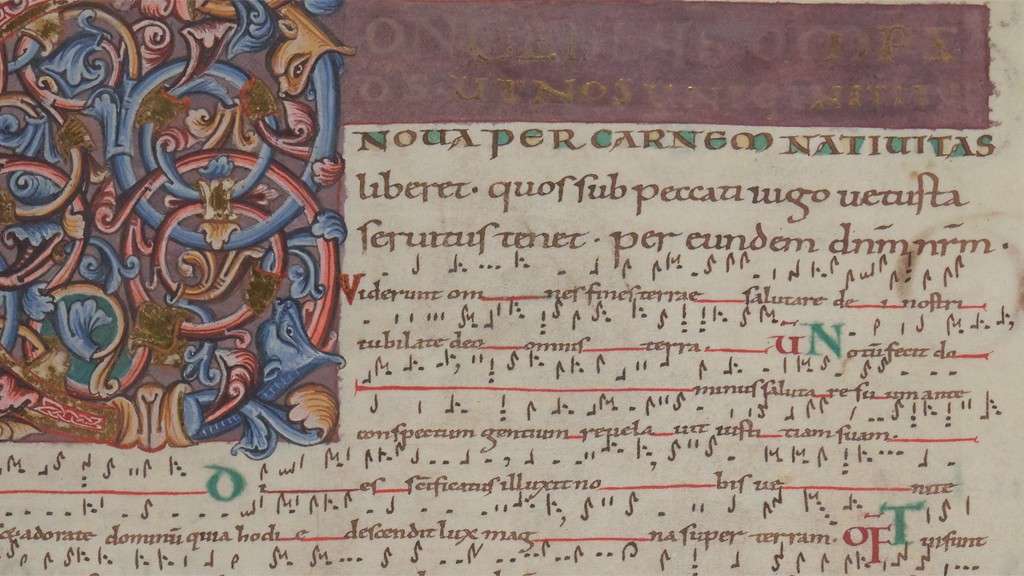 ONCEDE QS OMPS
DS UT NOS UNIGENITI TUI
NOVA PER CARNEM NATIVITAS
liberet · quos sub peccati iugo vetusta
servitus tenet · per eundem dnm nrm ·
Viderunt om nes fines terrae salutare de i nostri
iubilate deo omnis terra. V Notu fecit do
minus saluta re su um ante
conspectum gentium revela vit iusti tiam suam.
D i es scificatus illuxit no bis ve nite
adorate dominu quia hodi e descendit lux mag na super terram. OF Tui sunt